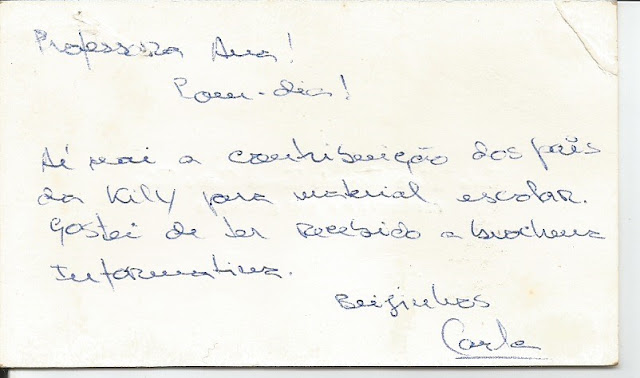 Professora Ana!
Bom-dia!
Aí vai a contribuição dos pais
da Kily para material escolar.
Gostei de ter recebido a brochura
Informativa.
Beijinhos
Carla